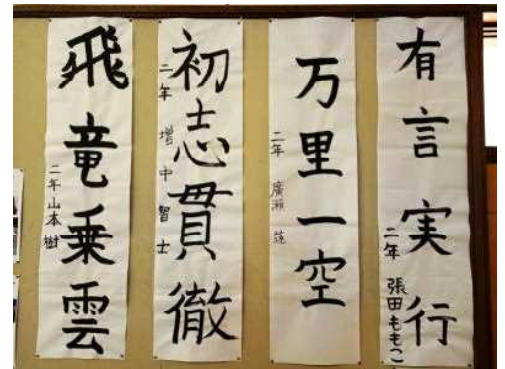 有言実行
二年 張田ももこ
万里一空
二年 廣瀬
初志貫徹
二年 増中智士
飛竜乗雲
二年山本樹